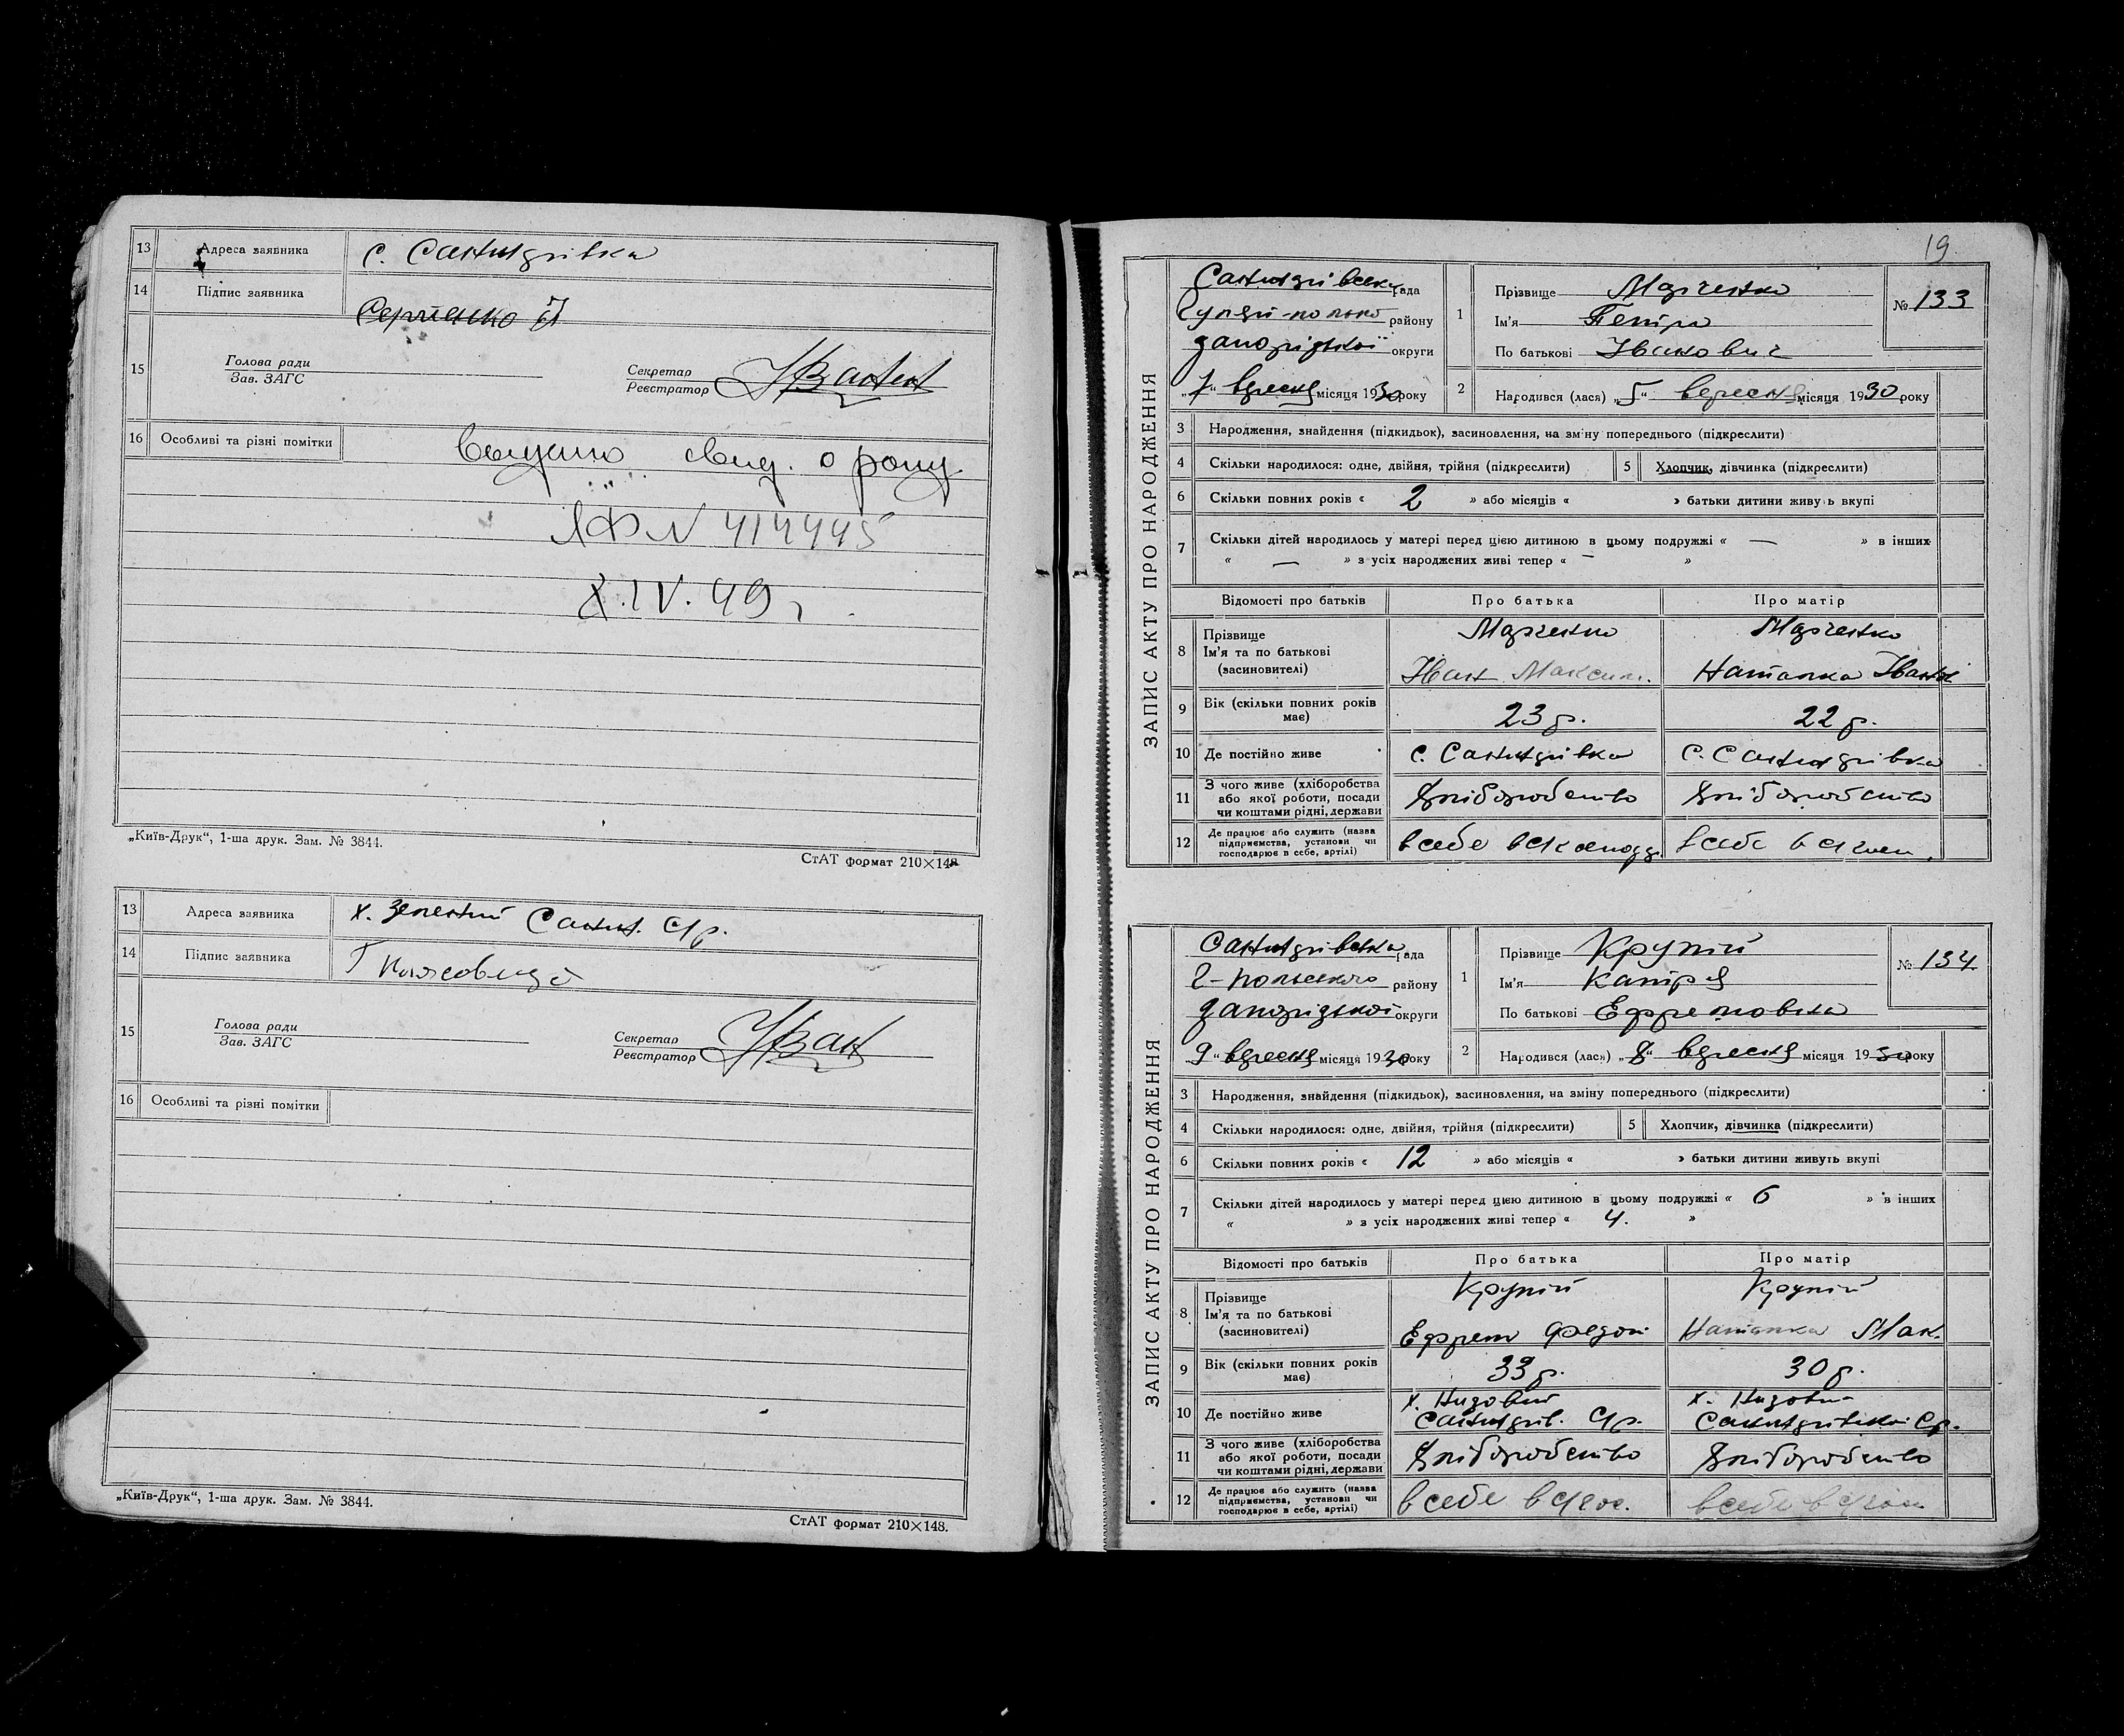 13 Адреса заявника с. Санжарівка
14 Підпис заявника Сергіенко
15 Голова ради
Зав. ЗАГС
Секретар
Реєстратор
16 Особливі та різні помітки
видано свид. о рожд.
ЯФ N 414445
X.IV.49 г
„Київ-Друк“, 1-ша друк. Зам. № 3844.
СтАТ формат 210×148
13 Адреса заявника х. Зелений
14 Підпис заявника
15 Голова ради
Зав. ЗАГС
Секретар
Реєстратор
16 Особливі та різні помітки
„Київ-Друк“, 1-ша друк. Зам. № 3844.
СтАТ формат 210×148.
19
ЗАПИС АКТУ ПРО НАРОДЖЕННЯ
рада
району
запорізької округи
„7“ вересня місяця 1930 року
1 Прізвище Марченко
Ім'я Петро
По батькові Іванович
№ 133
2 Народився (лася) „5“ вересня місяця 1930 року
3 Народження, знайдення (підкидьок), засиновлення, на зміну попереднього (підкреслити)
4 Скільки народилося: одне, двійня, трійня (підкреслити) 5 Хлопчик, дівчинка (підкреслити)
6 Скільки повних років « 2 » або місяців « » батьки дитини живуть вкупі
7 Скільки дітей народилось у матері перед цією дитиною в цьому подружжі « — » в інших
« — » з усіх народжених живі тепер « — »
Відомості про батьків Про батька Про матір
8 Прізвище Марченко Марченко
Ім'я та по батькові
(засиновителі) Іван Максим. Наталка Іван
9 Вік (скільки повних років має) 23 р. 22 р.
10 Де постійно живе
11 З чого живе (хліборобства
або якої роботи, посади
чи коштами рідні, держави хліборобство хліборобство
12 Де працює або служить (назва
підприємства, установи чи
господарює в себе, артілі) в себе в себе
ЗАПИС АКТУ ПРО НАРОДЖЕННЯ
рада
Г-польського району
запорізької округи
9“ вересня місяця 1930 року
1 Прізвище Крупій
Ім'я Катря
По батькові Ефремовна
№ 134
2 Народився (лася) „8“ вересня місяця 1930 року
3 Народження, знайдення (підкидьок), засиновлення, на зміну попереднього (підкреслити)
4 Скільки народилося: одне, двійня, трійня (підкреслити) 5 Хлопчик, дівчинка (підкреслити)
6 Скільки повних років « 12 » або місяців « » батьки дитини живуть вкупі
7 Скільки дітей народилось у матері перед цією дитиною в цьому подружжі « 6 » в інших
« » з усіх народжених живі тепер « 4. »
Відомості про батьків Про батька Про матір
8 Прізвище Крупій Крупій
Ім'я та по батькові
(засиновителі) Ефрем Федор Наталка Мак.
9 Вік (скільки повних років має) 33 р. 30 р.
10 Де постійно живе х. Низовий х. Низовий
11 З чого живе (хліборобства
або якої роботи, посади
чи коштами рідні, держави хліборобство хліборобство
12 Де працює або служить (назва
підприємства, установи чи
господарює в себе, артілі) в себе в себе